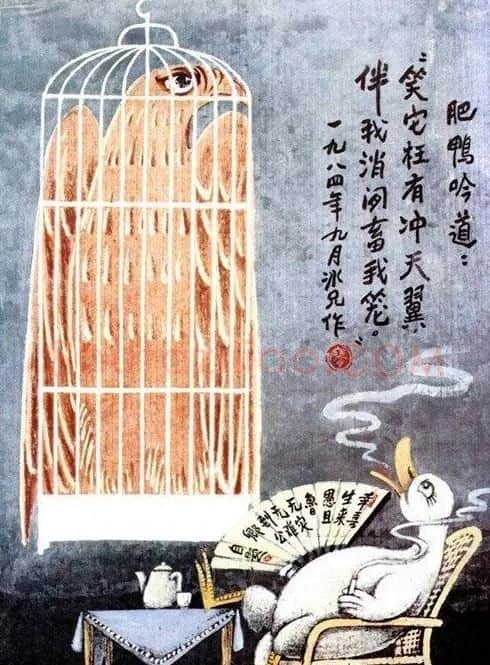 肥鸭吟道：
“笑它枉有冲天翼，
伴我消闲畜我笼。”
一九八四年九月冰兄作
幸喜
生来
愚且
鲁
无灾
无难
到公
卿